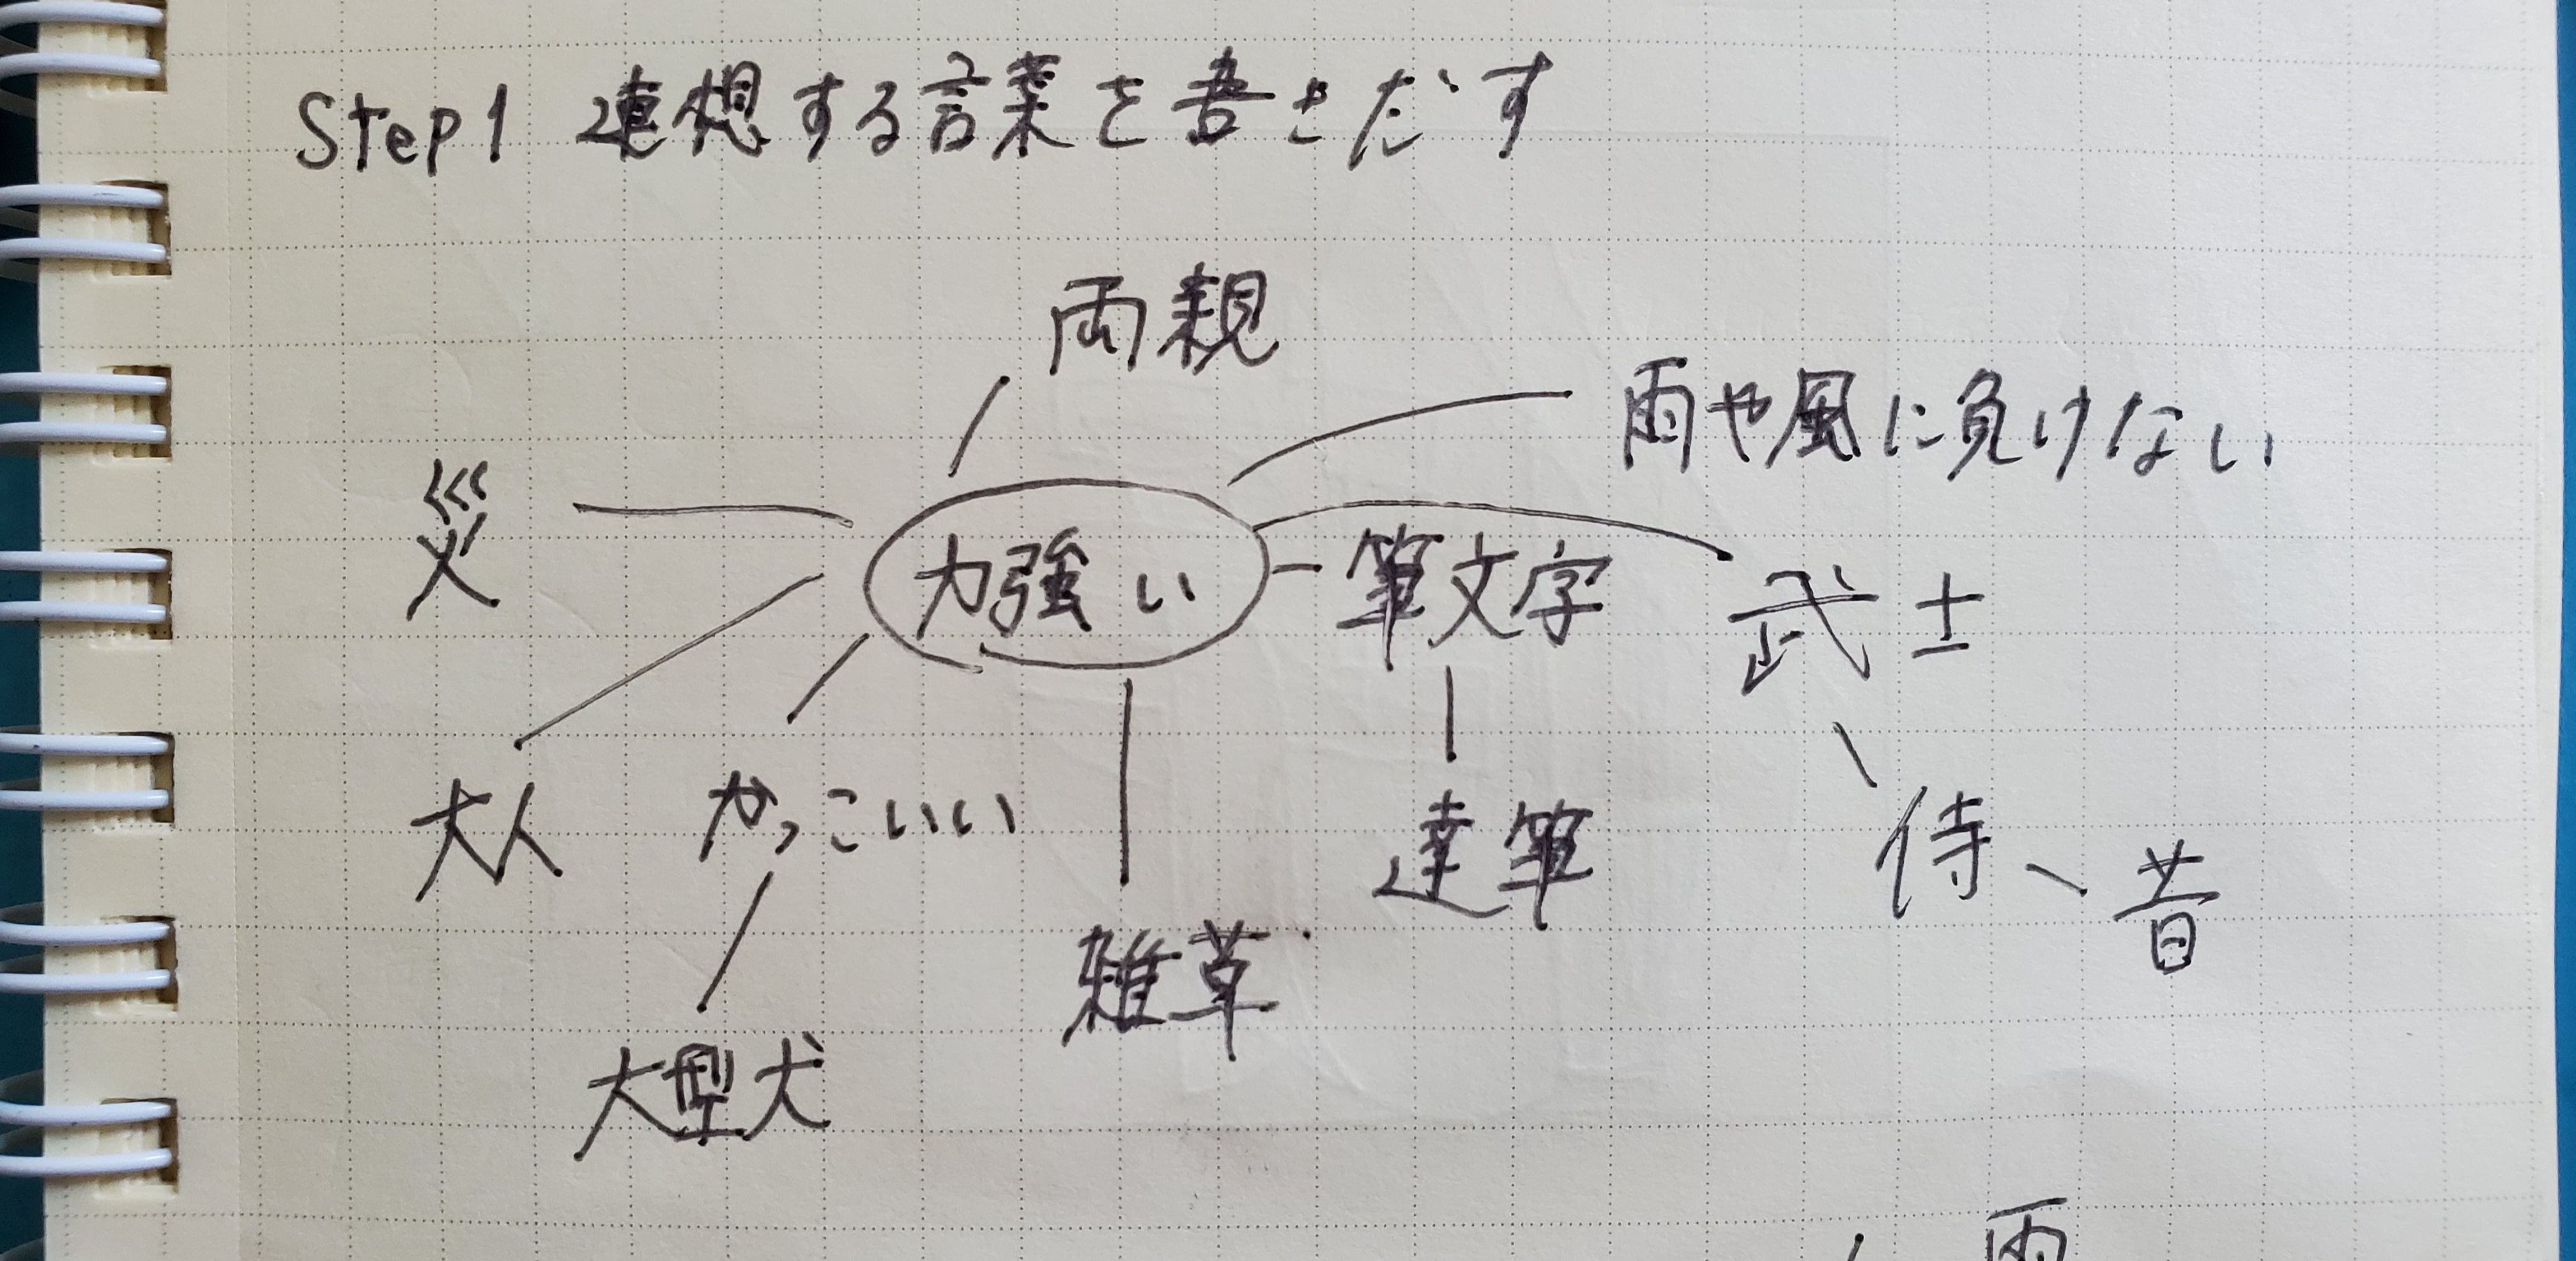 Step1 連想する言葉を書きだす
両親
雨や風に負けない
災
力強い
筆文字
武士
大人
かっこいい
達筆
侍
昔
雑草
大型犬
雨